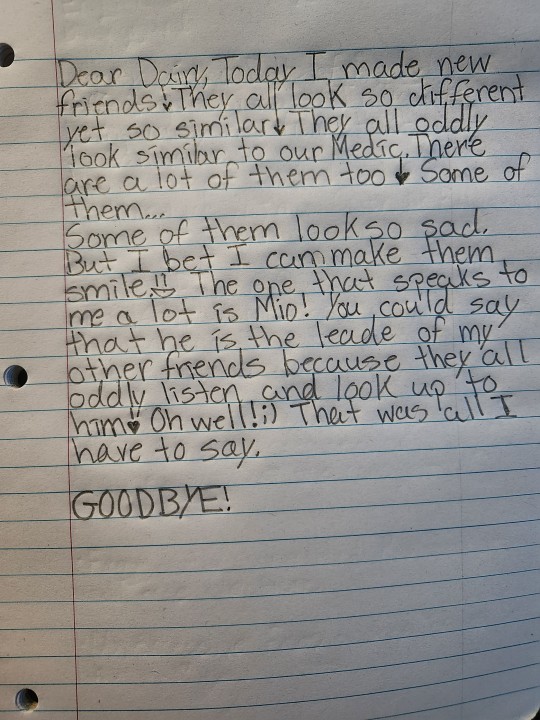 Dear Dairy, Today I made new
friends!♥They all look so different
yet so similar♥ They all oddly
look similar to our Medic. There
are a lot of them too ♥ Some of
them...
Some of them look so sad.
But I bet I can make them
smile!! The one that speaks to
me a lot is Mio! You could say
that he is the leade of my
other friends because they all
oddly listen and look up to
him♥ Oh well!:) That was all I
have to say.
GOODBYE!